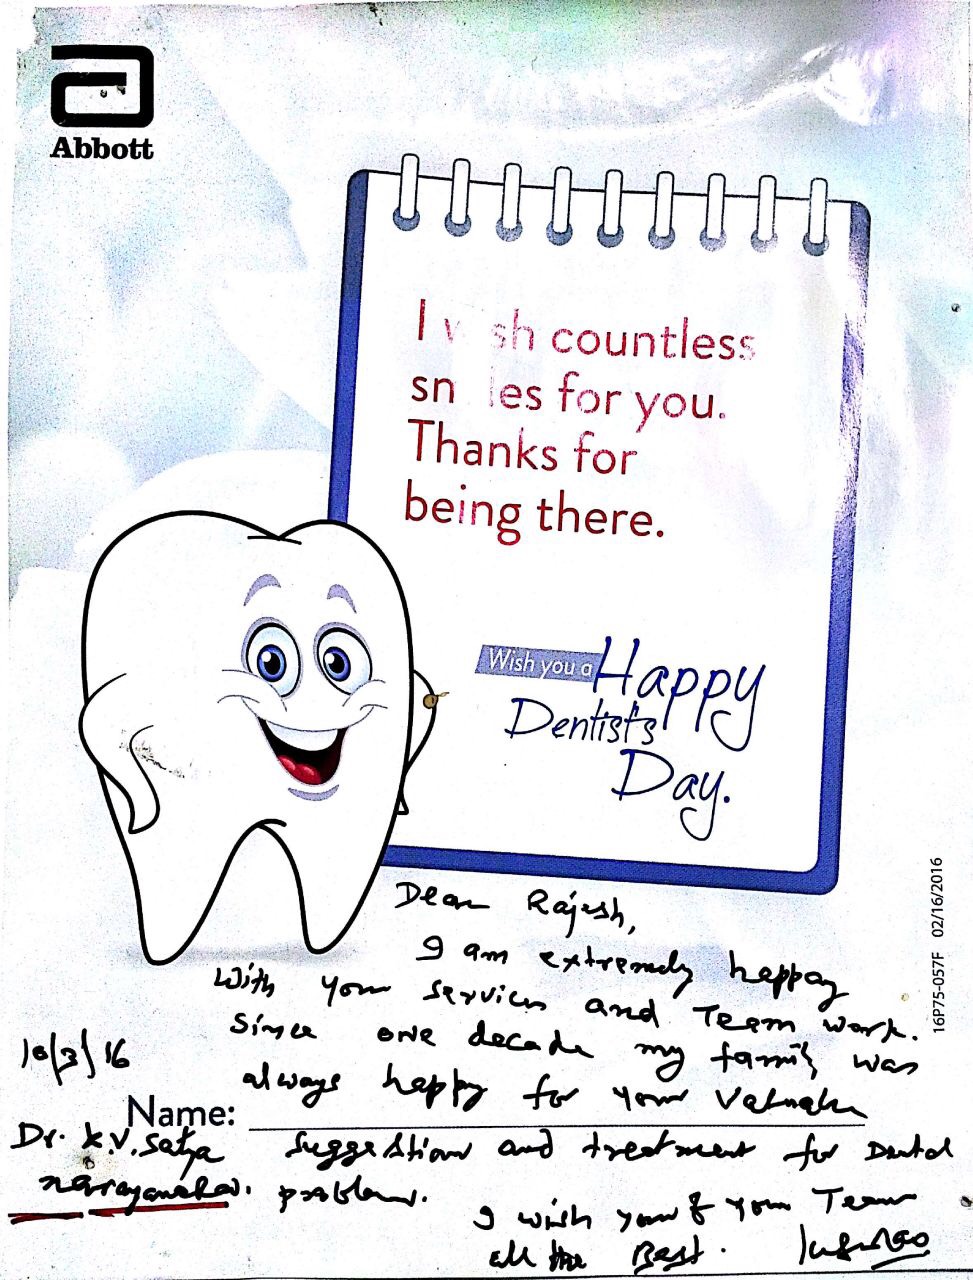 Abbott
I w sh countless
sm les for you.
Thanks for
being there.
Wish you a Happy
Dentist's
Day.
16P75-057F 02/16/2016
Dear Rajesh,
I am extremely happy
with your services and Team work.
Since one decade my family was
always happy for your
10/3/16
Name:
Dr. K.V. Satya
narayanarao.
suggestions and treatment for Dental
problems.
I wish you & your Team
all the Best.